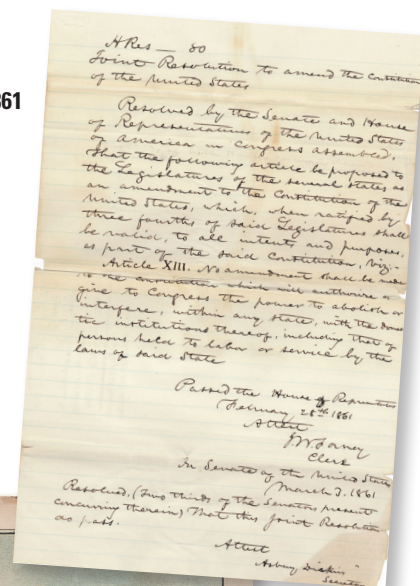 861
H Res — 80
Joint Resolution to amend the Constitution
of the United States
Resolved by the Senate and House
of Representatives of the United States
of America in Congress assembled,
That the following article be proposed to
the Legislatures of the several states as
an amendment to the Constitution of the
United States, which, when ratified by
three fourths of said Legislatures shall
be valid, to all intents and purposes,
as part of the said Constitution, viz:-
Article XIII. No amendment shall be made
to the constitution which will authorize or
give to Congress the power to abolish or
interfere, within any state, with the domes
tic institutions thereof, including that of
persons held to labor or service by the
laws of said State
Passed the House of Representatives
February 28th 1861
Attest
J W Forney
Clerk
In Senate of the United States
March 3, 1861
Resolved, (two thirds of the Senators present
concurring therein) That this Joint Resolution
do pass.
Attest
Asbury Dickins
Secreta